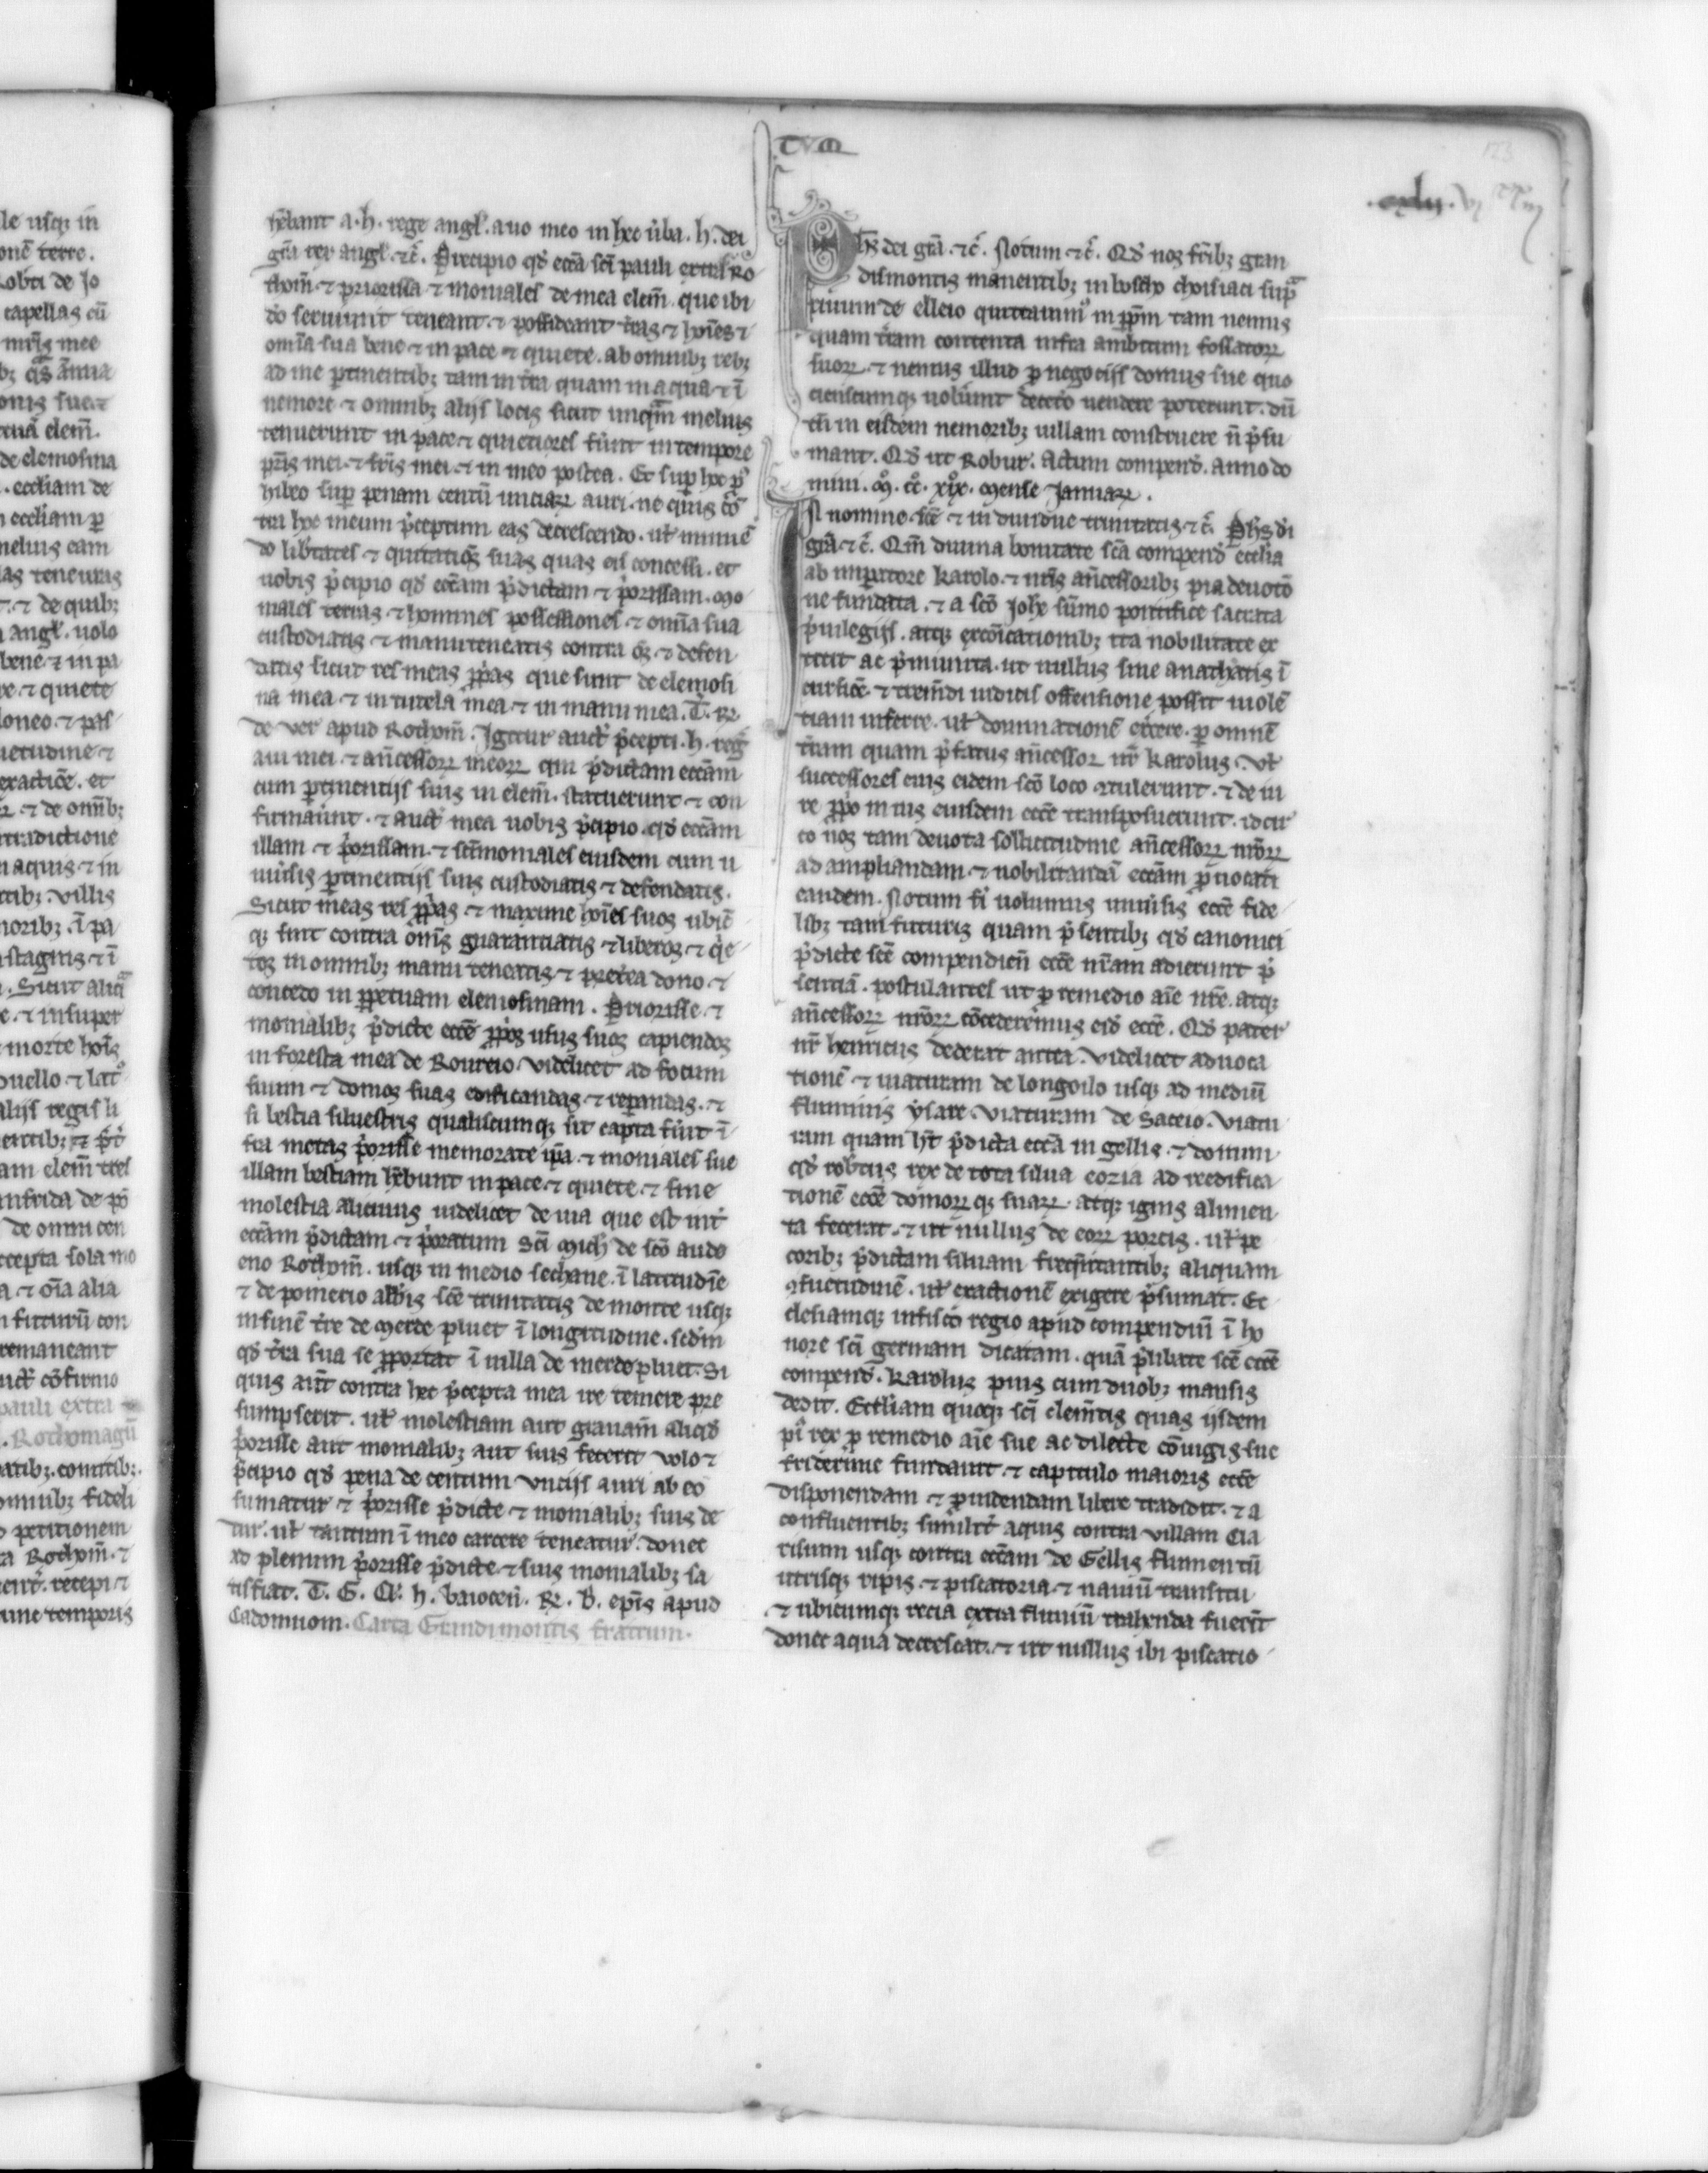 le usq; in
onē terre.
Robti de Jo
capellas cū
mr̄is mee
b; qd̄ annua
onis sue ⁊
tuā elem̄.
de elemosina
. eccliam de
n eccliam ꝑ
melius eam
las teneuras
⁊ de quib;
angl'. uolo
bene ⁊ in pa
re ⁊ quiete
loneo ⁊ pas
uetudine ⁊
exactiōe. et
⁊ de om̄ib;
tradictione
n aquis ⁊ in
tib; villis
morib; ī pa
stagnis ⁊ ī
. Sicut aliq̄
e. ⁊ insuper
morte hoīs
duello ⁊ lat°
alijs regis li
entib; ⁊ p̄t
am elem̄ tres
anfrida de p̄
de omni cen
ccepta sola mo
a ⁊ oīa alia
n futurū con
remaneant
uct' cōfirmo
pauli extra
. Rothomagū
atib; comitib;.
omnib; fideli
petitionem
ta Rothom̄. ⁊
ent. recepi ⁊
une temporis
CVM
.cxlii. vi
123
hēbant a .h. rege angl'. auo meo in hec ūba. h. dei
grā rex angl'. ⁊c̄. Precipio qd̄ ecc̄a sc̄i pauli extra Ro
thom̄ ⁊ priorissa ⁊ moniales de mea elem̄. que ibi
dō seruiunt teneant ⁊ possideant t̄ras ⁊ hoīes ⁊
omīa sua bene ⁊ in pace ⁊ quiete. ab omnib; reb;
ad me ꝑtinentib; tam in t̄ra quam in aqua ⁊ ī
nemore ⁊ omnib; alijs locis sicut unqm̄ melius
tenuerunt in pace ⁊ quietiores fūnt in tempore
pr̄is mei ⁊ fr̄is mei ⁊ in meo postea. Et suꝑ hoc p̄
hibeo suꝑ penam centū unciaꝝ auri. ne quis cō
tra hoc meum p̄ceptum eas decrescendo. ut' minuē
do lib̄tates ⁊ quitatiōes suas quas eis concessi. et
uobis p̄cipio qd̄ ecc̄am p̄dictam ⁊ p̄orissam. mo
niales terras ⁊ homines possessiones ⁊ om̄ia sua
custodiatis ⁊ manuteneatis contra oēs ⁊ defen
datis sicut res meas ꝓpas que sunt de elemosi
na mea ⁊ in tutela mea ⁊ in manu mea. T. R.
de ver apud Rothom̄. Igitur auct' p̄cepti .h. reḡ
aui mei ⁊ an̄cessoꝝ meoꝝ qui p̄dictam ecc̄am
cum ꝑtinentijs suis in elem̄. statuerunt ⁊ con
firmaūnt. ⁊ auct' mea uobis p̄cipio. qd̄ ecc̄am
illam ⁊ p̄orissam. ⁊ sc̄imoniales eiusdem cum u
niūsis ꝑtinentijs suis custodiatis ⁊ defendatis.
Sicut meas res ꝓpas ⁊ maxime hoīes suos ubicū
q; sint contra om̄s guarantiatis ⁊ liberos ⁊ q̄e
tos in omnib; manu teneatis ⁊ pret'ea dono ⁊
concedo in ꝑpetuam elemosinam. Priorisse ⁊
monialib; p̄dicte ecc̄e ꝓpos usus suos capiendos
in foresta mea de Roureio. videlicet ad focum
suum ⁊ domos suas edificandas ⁊ reꝑandas. ⁊
si bestia siluestris qualiscumq; sit capta fūit ī
fra metas p̄orisse memorate ip̄a ⁊ moniales sue
illam bestiam hēbunt in pace ⁊ quiete ⁊ sine
molestia alicuius uidelicet de uia que est int̄
ecc̄am p̄dictam ⁊ p̄oratum Sc̄i Mich' de sc̄o audo
eno Rothom̄. usq; in medio sechane. ī latitudīe
⁊ de pomerio abb̄is sc̄e trinitatis de monte usq;
in finē t̄re de Merde pluet ī longitudine. sed in
qd̄ t̄ra sua se ꝓportat ī uilla de merdepluet. Si
quis aūt contra hec p̄cepta mea ire temere pre
sumpserit. ut' molestiam aut grauam̄ aliqd̄
p̄orisse aut monialib; aut suis fecerit volo ⁊
p̄cipio qd̄ pena de centum vncijs auri ab eo
sumatur ⁊ p̄orisse p̄dicte ⁊ monialib; suis de
tur. ut' tantum ī meo carcere teneatur. donec
ad plenum p̄orisse p̄dicte ⁊ suis monialib; sa
tisfiat. T. G. Cl'. h. baiocen̄. R. B. ep̄is apud
Cadomuom. Carta Grandimontis fratrum.
Phs dei grā. ⁊c̄. Notum ⁊c̄. Qd̄ nos fr̄ib; gran
dismontis manentib; in bosco choisiaci sup̄
riuum de elleio quitauim' in ꝑpm̄ tam nemus
quam t̄ram contenta infra ambitum fossatoꝝ
suoꝝ. ⁊ nemus illud ꝓ negocijs domus sue quo
cienscumq; uolūint decet̄o uendere poterunt. dū
tn̄ in eisdem nemorib; uillam construere n̄ p̄su
mant. Qd̄ ut Robur. Actum compend̄. anno do
mini. M. cc̄. xix°. mense Januarii.
In nomine sc̄e ⁊ in diuidue trinitatis ⁊c̄. Phs di
grā ⁊c̄. Qm̄ diuina bonitate sc̄a compend̄ ecclia
ab imꝑatore karolo. ⁊ nr̄is an̄cessorib; pia deuotō
ne fundata. ⁊ a sc̄o Johe sūmo pontifice sacrata
p̄uilegijs. atq; excōicationib; ita nobilitate ex
titit ac p̄munita. ut nullus sine anathātis ī
cursiōe ⁊ trem̄di iudicis offensione possit uiolē
tiam inferre. ut' dominationē ex̄cere. ꝑ omnē
t̄ram quam p̄fatus an̄cessor nr̄ karolus. ut'
successores eius eidem sc̄o loco ꝯtulerunt. ⁊ de iu
re ꝓpo in ius eiusdem ecc̄e transposuerunt. idcir
co nos tam deuota sollicitudine an̄cessoꝝ nr̄oꝝ
ad ampliandam ⁊ nobilitandā ecc̄am ꝓuocati
eandem. Notum fi' uolumus uniūsis ecc̄e fide
lib; tam futuris quam p̄sentib; qd̄ canonici
p̄dicte sc̄e compendien̄ ecc̄e nr̄am adierunt p̄
sentiā. postulantes ut ꝓ remedio aīe nr̄e. atq;
an̄cessoꝝ nr̄oꝝ cōcederemus eid̄ ecc̄e. Qd̄ pater
nr̄ henricus dederat antea. Videlicet aduoca
tionē ⁊ uiaturam de longoilo usq; ad mediū
fluminis ysare. viaturam de Saceio. viatu
ram quam ht̄ p̄dicta ecc̄a in gellis. ⁊ domum
qd̄ rob̄tus rex de tota silua cozia ad reedifica
tionē ecc̄e domoꝝ q; suaꝝ. atq; ignis alimen
ta fecerat. ⁊ ut nullus de eoꝝ porcis. ut' pe
corib; p̄dictam siluam freqn̄tantib; aliquam
ꝯsuetudinē. ut' exactionē exigere p̄sumat. Ec
clesiamq; infisco regio apud compendiū ī ho
nore sc̄i germani dicatam. quā p̄libate sc̄e ecc̄e
compend̄. karolus pius cum duob; mansis
dedit. Eccl'iam quoq; sc̄i clem̄tis quas ijsdem
pi' rex ꝓ remedio aīe sue ac dilecte cōiugis sue
friderune fundauit. ⁊ capitulo maioris ecc̄e
disponendam ⁊ ꝓuidendam libere tradidit. ⁊ a
confluentib; simil'r aquis contra villam Cla
risuim usq; contra ecc̄am de Gellis flumen cū
utrisq; ripis. ⁊ piscatoria. ⁊ nauiū transitu
⁊ ubicumq; recia extra fluuiū trahenda fuerīt
donec aqua decrescat. ⁊ ut nullus ibi piscatio